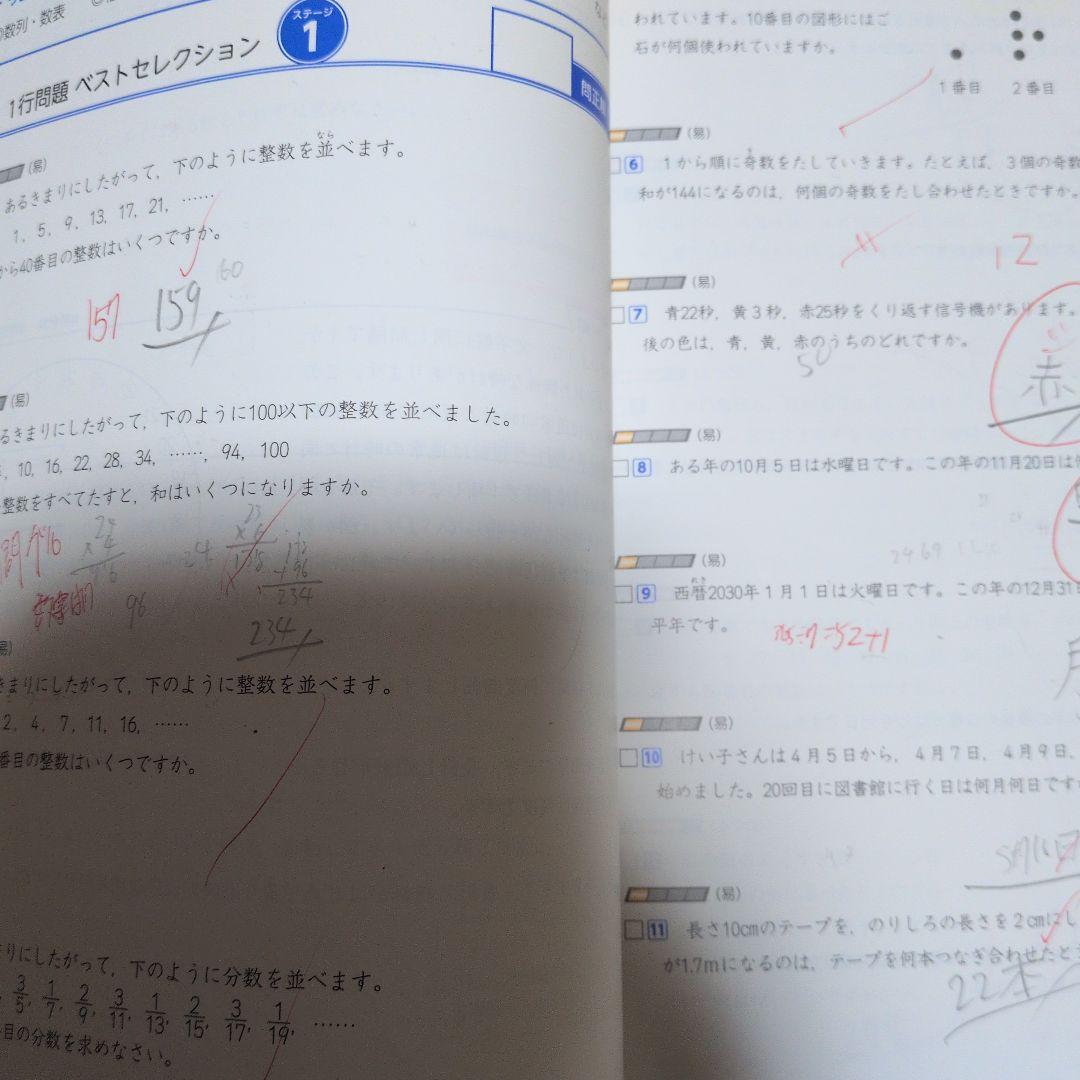 数列・数表
1行問題 ベストセレクション
ステージ
1
(易)
なら
あるきまりにしたがって，下のように整数を並べます。
1，5，9，13，17，21，……
から40番目の整数はいくつですか。
60
157
159
(易)
るきまりにしたがって，下のように100以下の整数を並べました。
，10，16，22，28，34，……，94，100
整数をすべてたすと，和はいくつになりますか。
96
234
234
易)
きまりにしたがって，下のように整数を並べます。
2，4，7，11，16，……
番目の整数はいくつですか。
まりにしたがって，下のように分数を並べます。
3/5，1/7，2/9，3/11，1/13，2/15，3/17，1/19，……
目の分数を求めなさい。
われています。10番目の図形にはご
石が何個使われていますか。
1番目 2番目
(易)
6 1から順に奇数をたしていきます。たとえば，3個の奇数
和が144になるのは，何個の奇数をたし合わせたときですか。
11
12
(易)
7 青22秒，黄3秒，赤25秒をくり返す信号機があります。
後の色は，青，黄，赤のうちのどれですか。
50
赤
(易)
8 ある年の10月5日は水曜日です。この年の11月20日は
(易)
れき
9 西暦2030年1月1日は火曜日です。この年の12月31日
平年です。
365÷7=52+1
(易)
10 けい子さんは4月5日から，4月7日，4月9日，
始めました。20回目に図書館に行く日は何月何日です
(易)
11 長さ10cmのテープを，のりしろの長さを2cmにし
が1.7mになるのは，テープを何本つなぎ合わせたと
22本